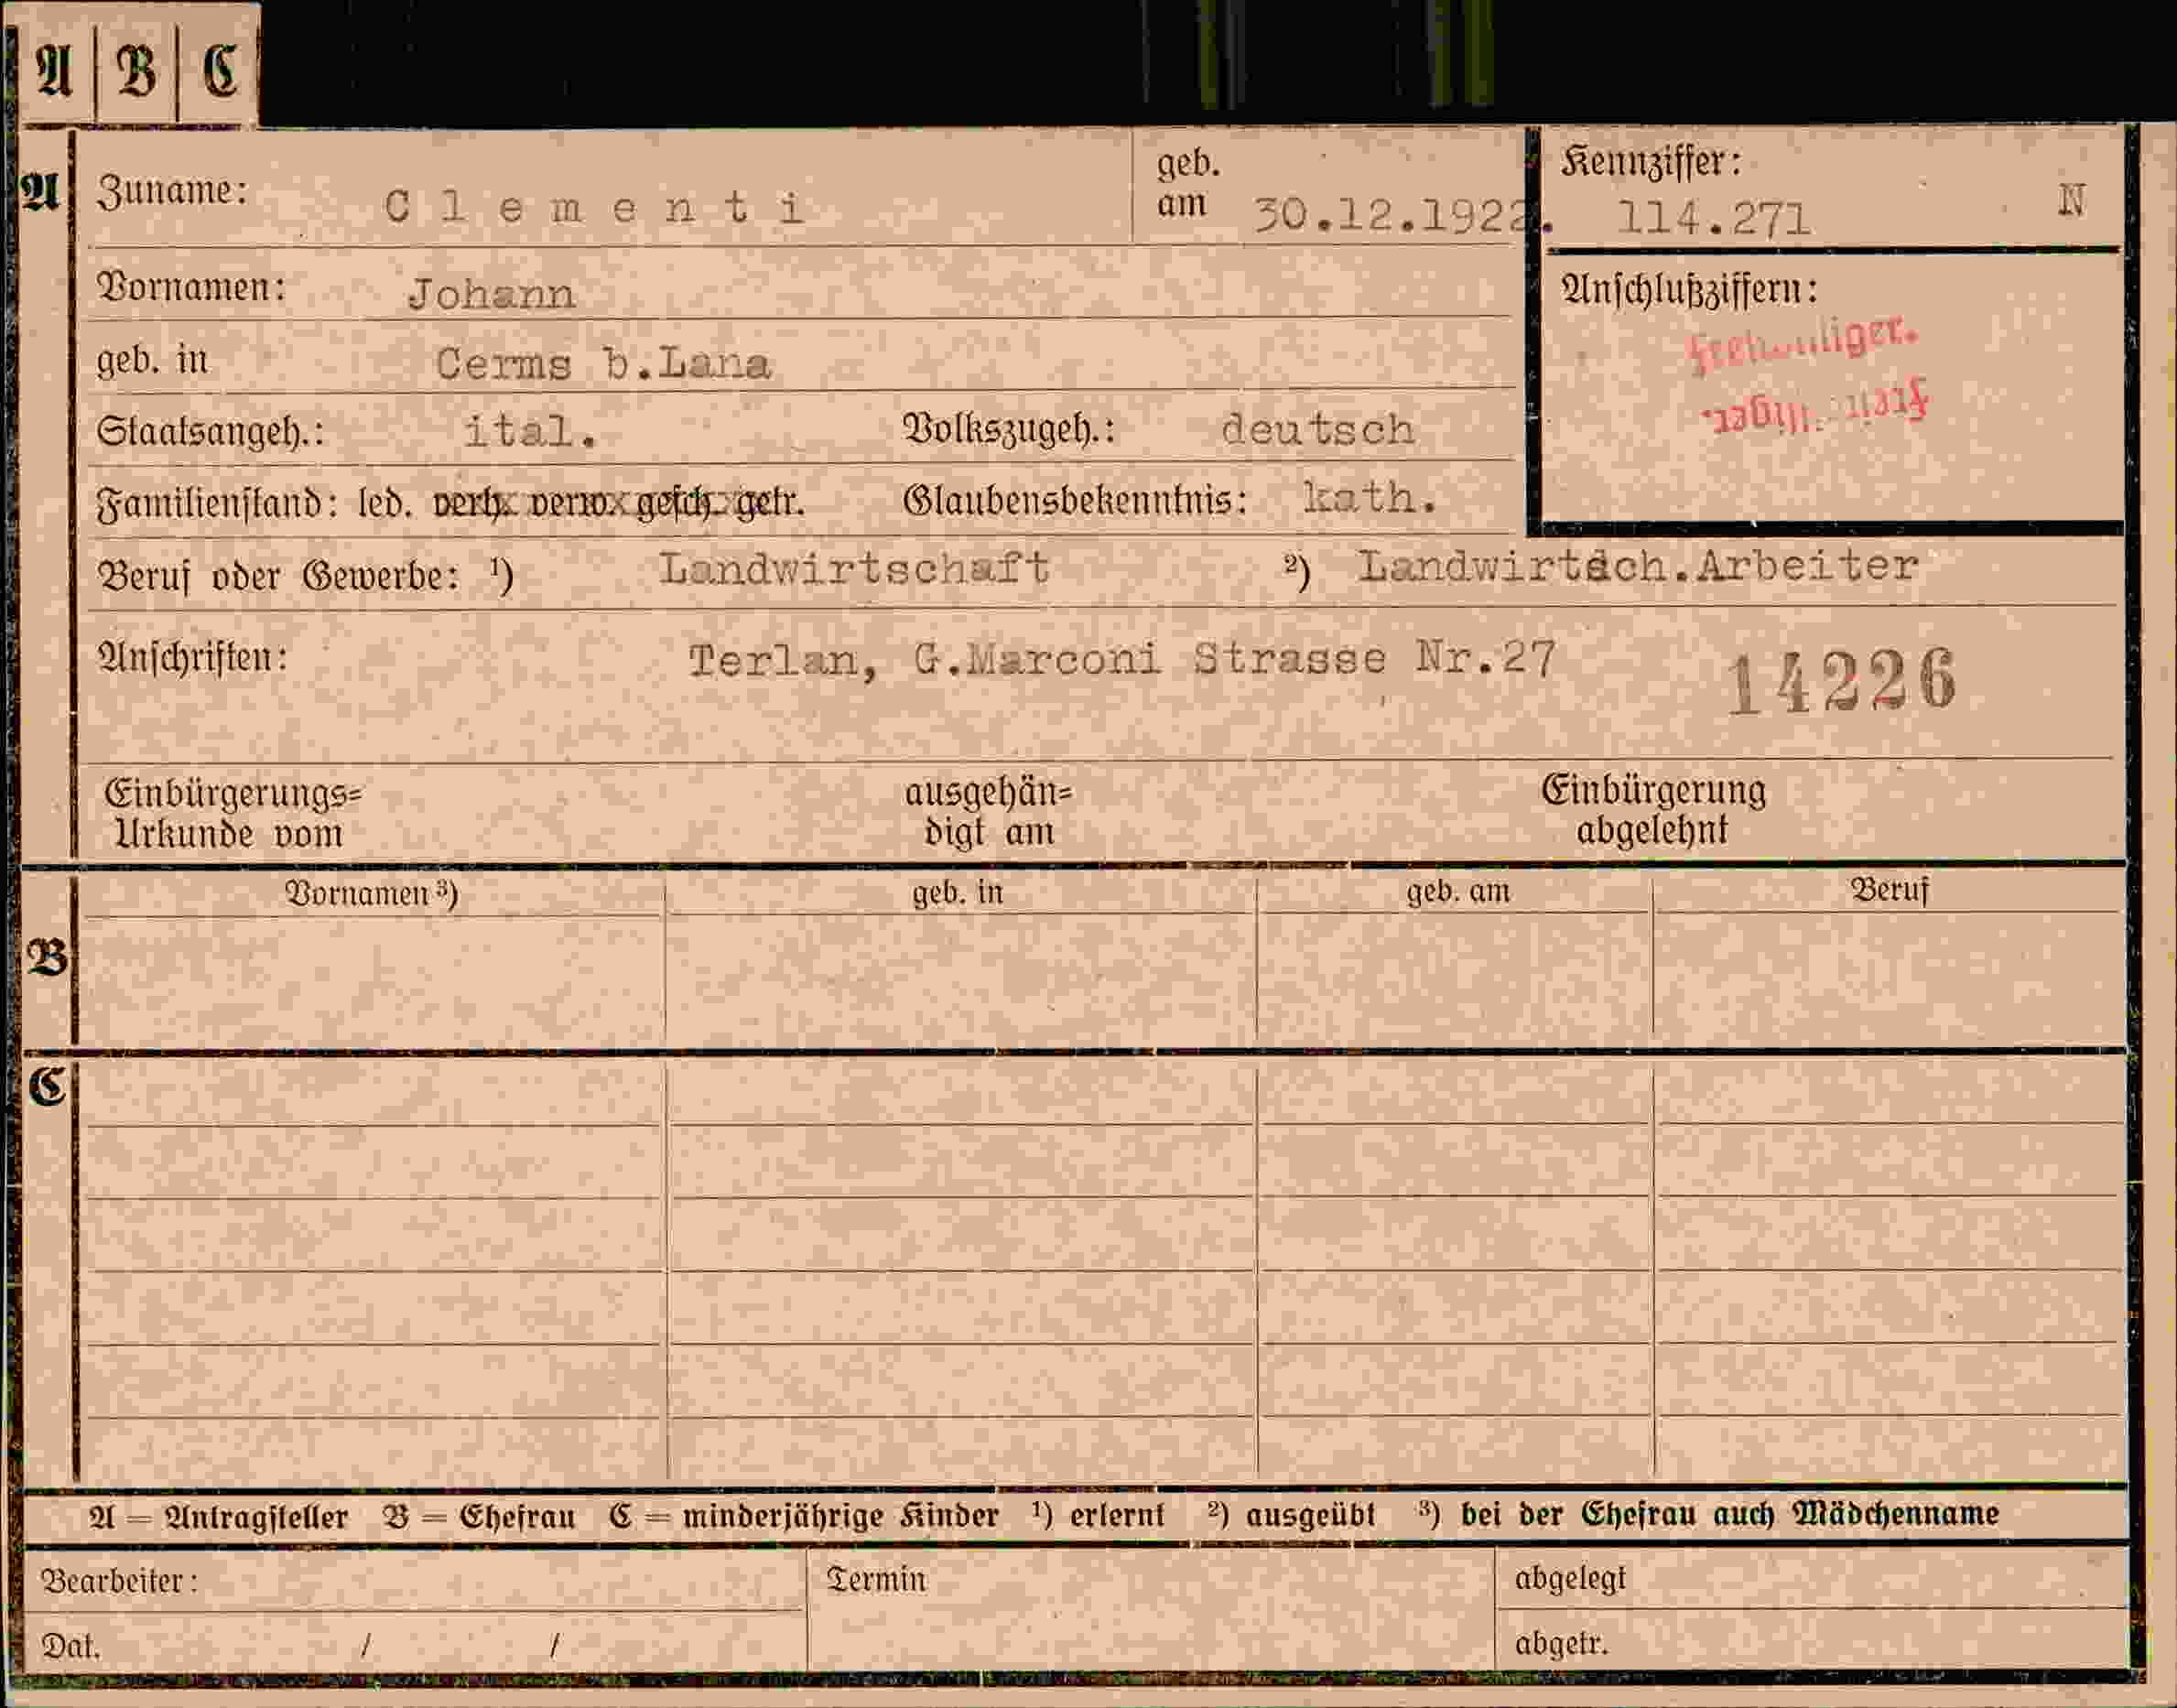 A B C
A Zuname: Clementi geb. am 30.12.1922. Kennziffer: 114.271 N
Vornamen: Johann Anschlußziffern:
geb. in Cerms b.Lana
Staatsangeh.: ital. Volkszugeh.: deutsch
Familienstand: led. verh. verw. gesch. getr. Glaubensbekenntnis: kath.
Beruf oder Gewerbe: ¹) Landwirtschaft ²) Landwirtsch.Arbeiter
Anschriften: Terlan, G.Marconi Strasse Nr.27 14226
Einbürgerungs= ausgehän= Einbürgerung
Urkunde vom digt am abgelehnt
Vornamen ³) geb. in geb. am Beruf
B
C
A = Antragsteller B = Ehefrau C = minderjährige Kinder ¹) erlernt ²) ausgeübt ³) bei der Ehefrau auch Mädchenname
Bearbeiter: Termin abgelegt
Dat. / / abgetr.